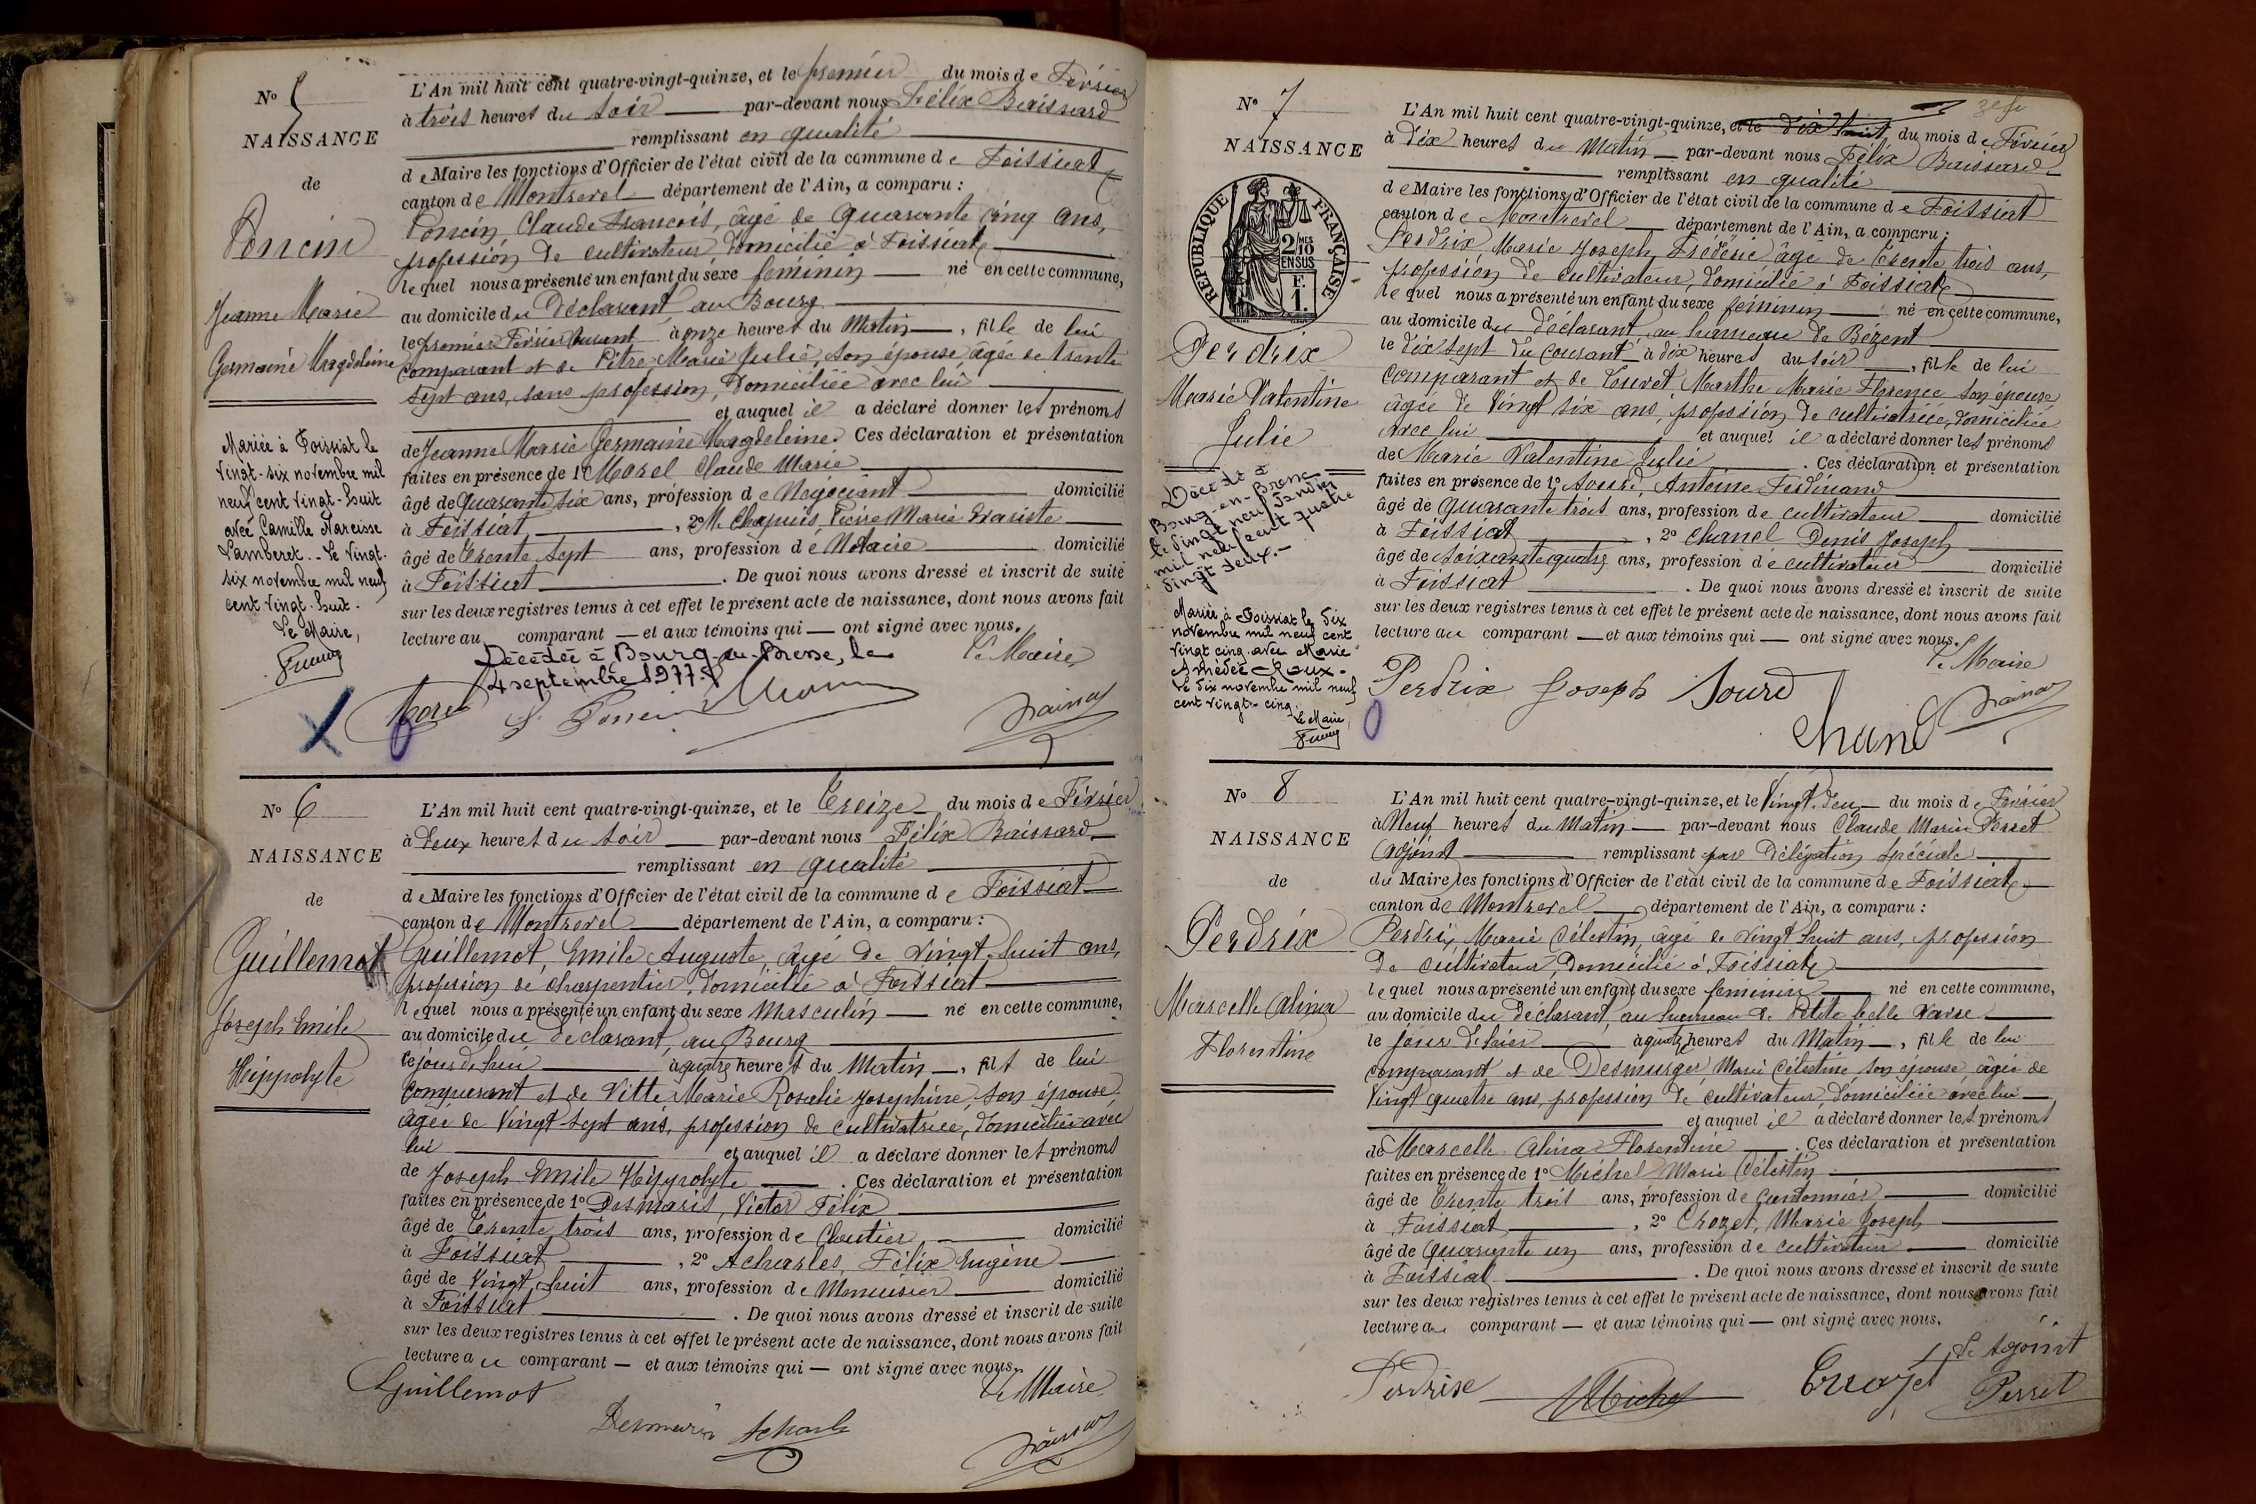 N° 5
NAISSANCE
de
Poncin
Jeanne Marie
Germaine Magdeleine
Mariée à Foissiat le
vingt-six novembre mil
neuf cent vingt-huit
avec Camille Narcisse
Lamberet.- Le vingt-
six novembre mil neuf
cent vingt-huit.
Le Maire,
L'An mil huit cent quatre-vingt-quinze, et le premier du mois de Février
à trois heures du soir par-devant nous Félix Baissard
remplissant en qualité
de Maire les fonctions d'Officier de l'état civil de la commune de Foissiat
canton de Montrevel département de l'Ain, a comparu :
Poncin, Claude François, âgé de quarante cinq ans,
profession de cultivateur, domicilié à Foissiat,
lequel nous a présenté un enfant du sexe féminin né en cette commune,
au domicile du Déclarant, au Bourg
le premier Février courant à onze heures du Matin, fille de lui
comparant et de Pitre Marie Julie, son épouse âgée de trente
sept ans, sans profession, domiciliée avec lui
et auquel il a déclaré donner les prénoms
de Jeanne Marie Germaine Magdeleine. Ces déclaration et présentation
faites en présence de 1° Morel Claude Marie
âgé de quarante six ans, profession de Négociant domicilié
à Foissiat, 2° M. Chapuis, Pierre Marie Evariste
âgé de trente sept ans, profession de Notaire domicilié
à Foissiat. De quoi nous avons dressé et inscrit de suite
sur les deux registres tenus à cet effet le présent acte de naissance, dont nous avons fait
lecture au comparant — et aux témoins qui — ont signé avec nous.
Décédée à Bourg-en-Bresse, le
4 septembre 1977.
Le Maire,
Morel
N° 6
NAISSANCE
de
Guillemot
Joseph Emile
Hippolyte
L'An mil huit cent quatre-vingt-quinze, et le treize du mois de Février
à deux heures du soir par-devant nous Félix Baissard
remplissant en qualité
de Maire les fonctions d'Officier de l'état civil de la commune de Foissiat
canton de Montrevel département de l'Ain, a comparu :
Guillemot, Emile Auguste, âgé de vingt-huit ans,
profession de charpentier, domicilié à Foissiat
lequel nous a présenté un enfant du sexe Masculin né en cette commune,
au domicile du déclarant, au Bourg
ce jourd'hui à quatre heures du Matin, fils de lui
comparant et de Vitte Marie Rosalie Joséphine, son épouse
âgée de vingt-sept ans, profession de cultivatrice, domiciliée avec
lui et auquel il a déclaré donner les prénoms
de Joseph Emile Hippolyte. Ces déclaration et présentation
faites en présence de 1° Desmaris, Victor Félix
âgé de trente trois ans, profession de Cloutier domicilié
à Foissiat, 2° Acharles, Félix Eugène
âgé de vingt-huit ans, profession de Menuisier domicilié
à Foissiat. De quoi nous avons dressé et inscrit de suite
sur les deux registres tenus à cet effet le présent acte de naissance, dont nous avons fait
lecture au comparant — et aux témoins qui — ont signé avec nous.
Le Maire
Guillemot
Desmaris Acharles
N° 7
NAISSANCE
RÉPUBLIQUE FRANÇAISE
2/10 MES
EN SUS
F.
1.
Perdrix
Marie Valentine
Julie
Décédée à
Bourg-en-Bresse
le vingt neuf Janvier
mil neuf cent quatre
vingt deux.-
Mariée à Foissiat le dix
novembre mil neuf cent
vingt cinq avec Marie
Amédée Roux.-
Le dix novembre mil neuf
cent vingt-cinq.
Le Maire,
L'An mil huit cent quatre-vingt-quinze, et le dix huit du mois de Février
à dix heures du Matin par-devant nous Félix Baissard
remplissant en qualité
de Maire les fonctions d'Officier de l'état civil de la commune de Foissiat
canton de Montrevel département de l'Ain, a comparu :
Perdrix, Marie Joseph Frédéric âgé de trente trois ans,
profession de cultivateur, domicilié à Foissiat,
lequel nous a présenté un enfant du sexe féminin né en cette commune,
au domicile du déclarant, au hameau de Bézent
le dix sept du courant à dix heures du soir, fille de lui
comparant et de Convert, Marthe Marie Florence son épouse
âgée de vingt six ans, profession de cultivatrice, domiciliée
avec lui et auquel il a déclaré donner les prénoms
de Marie Valentine Julie. Ces déclaration et présentation
faites en présence de 1° Sourd, Antoine Ferdinand
âgé de quarante trois ans, profession de cultivateur domicilié
à Foissiat, 2° Chanel Denis Joseph
âgé de soixante quatre ans, profession de cultivateur domicilié
à Foissiat. De quoi nous avons dressé et inscrit de suite
sur les deux registres tenus à cet effet le présent acte de naissance, dont nous avons fait
lecture au comparant — et aux témoins qui — ont signé avec nous.
Le Maire
Perdrix Joseph Sourd
Chanel
N° 8
NAISSANCE
de
Perdrix
Marcelle Alina
Florentine
L'An mil huit cent quatre-vingt-quinze, et le vingt-deux du mois de Février
à Neuf heures du Matin par-devant nous Claude Marie Perret
Adjoint remplissant par Délégation spéciale
du Maire les fonctions d'Officier de l'état civil de la commune de Foissiat,
canton de Montrevel département de l'Ain, a comparu :
Perdrix, Marie Célestin, âgé de vingt huit ans, profession
de cultivateur, domicilié à Foissiat,
lequel nous a présenté un enfant du sexe féminin né en cette commune,
au domicile du déclarant, au hameau de Petite belle Vavre
le jour d'hier à quatre heures du Matin, fille de lui
comparant et de Desmurger Marie Célestine son épouse âgée de
vingt quatre ans, profession de cultivateur, domiciliée avec lui
et auquel il a déclaré donner les prénoms
de Marcelle Alina Florentine. Ces déclaration et présentation
faites en présence de 1° Michel Marie Célestin
âgé de trente trois ans, profession de Cantonnier domicilié
à Foissiat, 2° Crozet, Marie Joseph
âgé de quarante un ans, profession de cultivateur domicilié
à Foissiat. De quoi nous avons dressé et inscrit de suite
sur les deux registres tenus à cet effet le présent acte de naissance, dont nous avons fait
lecture au comparant — et aux témoins qui — ont signé avec nous.
L'Adjoint
Perdrix Michel Crozet Perret